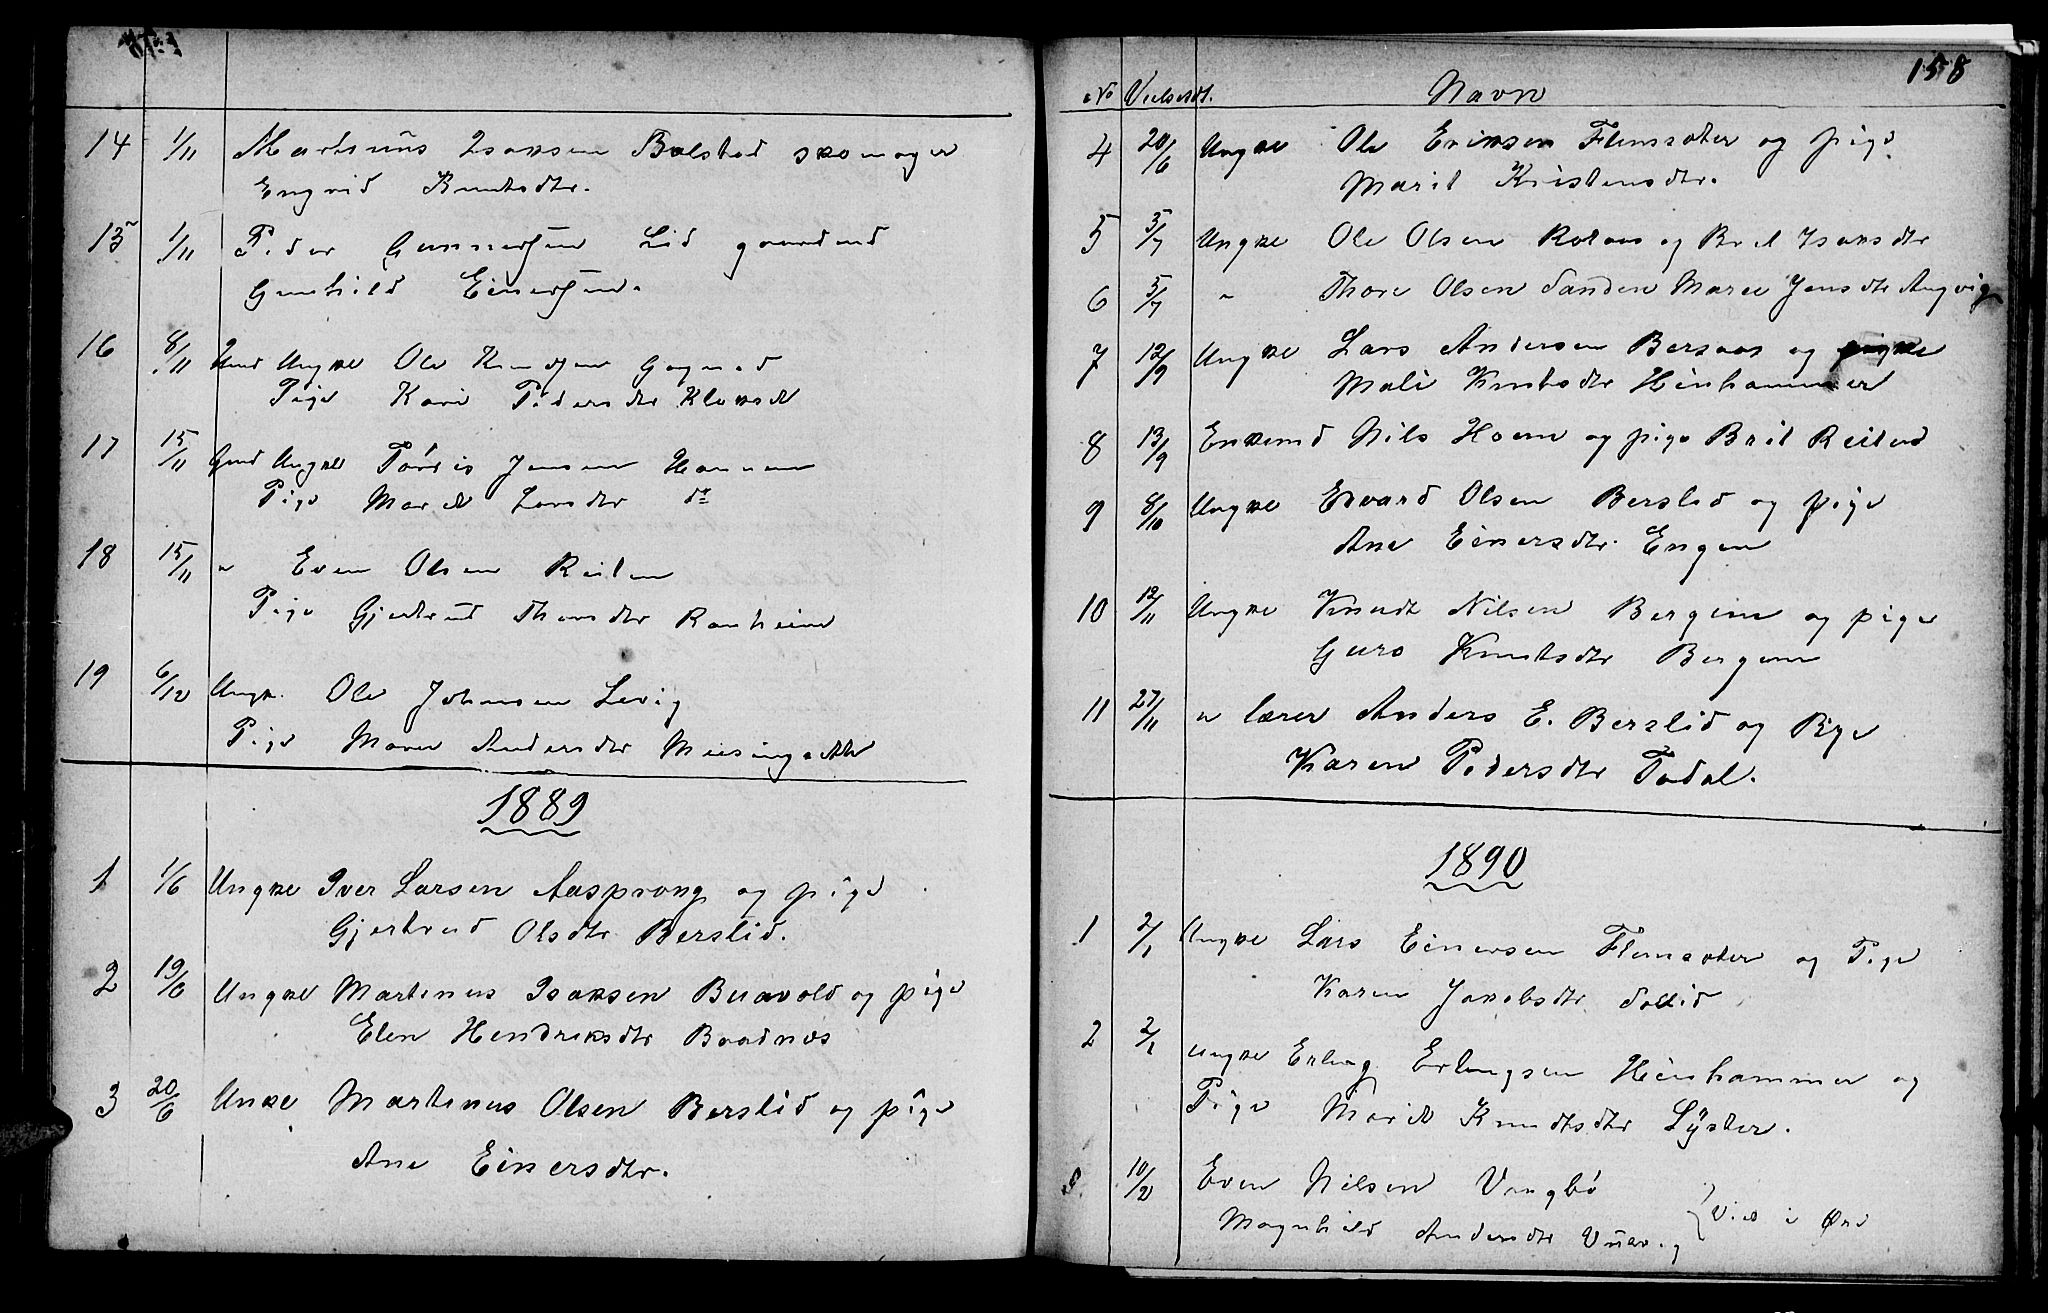 14 1/11 Martinus Isaksen Bolstad skomager
Engrid Knutsdtr.
15 1/11 Peder Gunnersen Lid gaardmd
Gunhild Einersen.
16 8/11 Gmd Ungke Ole Knudsen Gagnad
Pige Kari Pedersdtr Kleved
17 15/11 Gmd Ungke Tøris Jensen Hansen
Pige Marit Larsdtr do
18 15/11 " Even Olsen Reiten
Pige Gjertrud Thorsdtr Ranheim
19 6/12 Ungk. Ole Johnsen Levig
Pige Maren Andersdtr Meisingseth
1889
1 1/6 Ungke Iver Larsen Aasprong og pige
Gjertrud Olsdtr Berslid.
2 19/6 Ungke Martinus Isaksen Buavold og pige
Elen Hendriksdtr Baadnæs
3 20/6 Unke Martinus Olsen Berslid og pige
Ane Einersdtr.
158
No Vielsesdt. Navn
4 20/6 Ungke Ole Eriksen Flemsæter og pige
Marit Kristensdtr.
5 5/7 Ungke Ole Olsen Rotaas og Brit Isaksdtr
6 5/7 " Thore Olsen Sanden Maree Jensdtr Angvig
7 12/9 Ungke Lars Andersen Bersaas og
Mali Knutsdtr Heinhammer
8 13/9 Enkemd Nils Hoem og pige Brit Reiten
9 8/10 Ungke Edvard Olsen Berslid og pige
Ane Einersdtr. Engen
10 12/11 Ungke Knudt Nilsen Bergem og pige
Guro Knutsdtr Bergem
11 27/11 " lærer Anders E. Berslid og Pige
Karen Pedersdtr Todal.
1890
1 2/1 Ungke Lars Einersen Flemsæter og Pige
Karen Jakobsdtr Sollid
2 2/1 ungke Erling Erlingsen Heinhammer og
Pige Marit Knudtsdtr Lÿster.
3 10/2 Even Nilsen Vaagbø
Magnhild Andersdtr } Vied i Øre